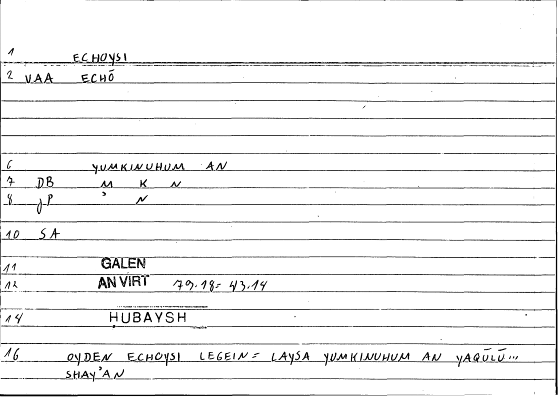 1 ECHOYSI
2 VAA ECHŌ
6 YUMKINUHUM AN
7 DB M K N
8 JP ʾ N
10 SA
11 GALEN
12 AN VIRT 79.18= 43.14
14 ḤUBAYSH
16 OYDEN ECHOYSI LEGEIN= LAYSA YUMKINUHUM AN YAQŪLŪ...
SHAYʾAN